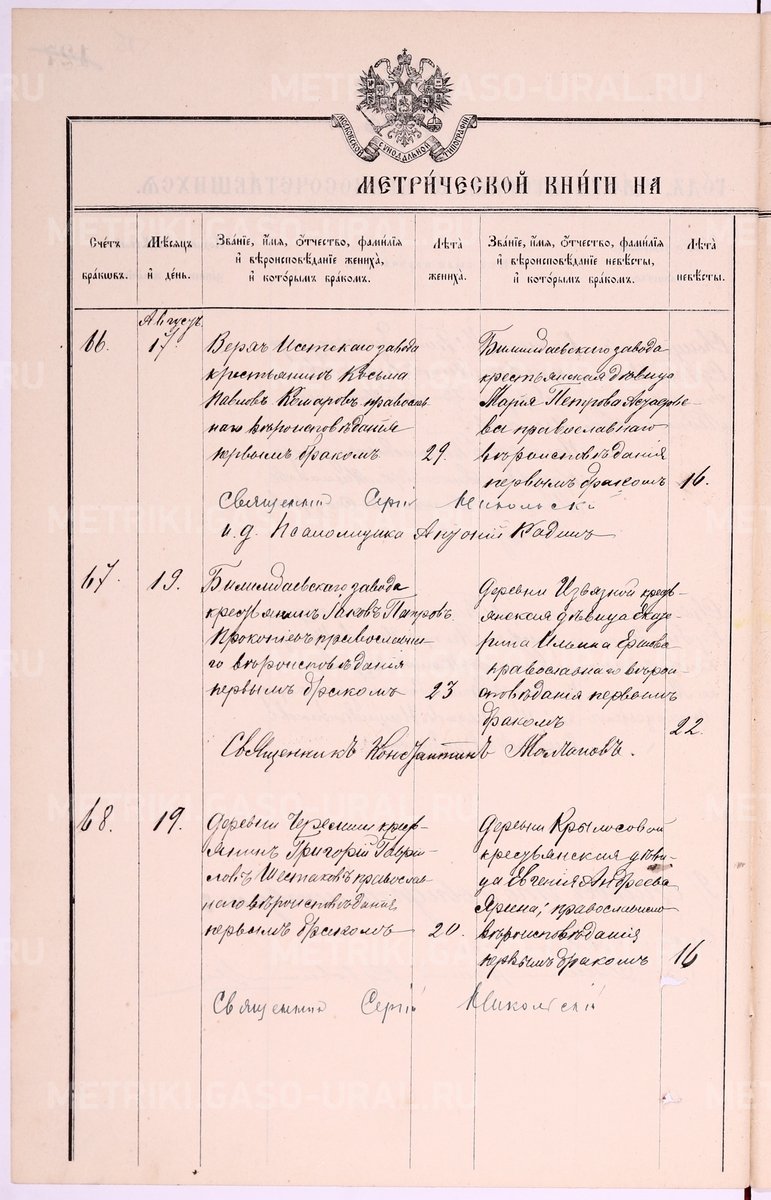 МОСКОВСКОЙ СѴНОДАЛЬНОЙ ТИПОГРАФІИ
МЕТРИ́ЧЕСКОЙ КНИ́ГИ НА
Сче́тъ бра́ковъ.
Мѣ́сяцъ и҆ де́нь.
Зва́нїе, и҆́мя, ѻ҆́тчество, фами́лїя
и҆ вѣроисповѣ́данїе жениха̀,
и҆ кото́рымъ бра́комъ.
Лѣ́та жениха̀.
Зва́нїе, и҆́мя, ѻ҆́тчество, фами́лїя
и҆ вѣроисповѣ́данїе невѣ́сты,
и҆ кото́рымъ бра́комъ.
Лѣ́та невѣ́сты.
Августъ
66. 17.
Верхъ Исетскаго завода
крестьянинъ Косьма
Павловъ Комаровъ православ
наго вѣроисповѣданія
первымъ бракомъ 29.
Билимбаевскаго завода
крестьянская дѣвица
Марія Петрова
ва православнаго
вѣроисповѣданія
первымъ бракомъ 16.
Священник Сергій Никольскій
и. д. Псаломщика Антоній Кадинъ
67. 19.
Билимбаевскаго завода
крестьянинъ Іаковъ Петровъ
Прокопіевъ православна
го вѣроисповѣданія
первымъ бракомъ 23
Деревни Извѣзной кресть
янская дѣвица Екате
рина Ильина Ершова
православнаго вѣрои
сповѣданія первымъ
бракомъ 22.
Священникъ Константинъ
68. 19.
Деревни Черемши крест
янинъ Григорій Гаври
ловъ Шестаковъ православ
наго вѣроисповѣданія
первымъ бракомъ 20.
Деревни Крылосовой
крестьянская дѣви
ца Евгенія Андреева
Ярина, православнаго
вѣроисповѣданія
первымъ бракомъ 16
Священник Сергій Никольскій
METRIKI.GASO-URAL.RU